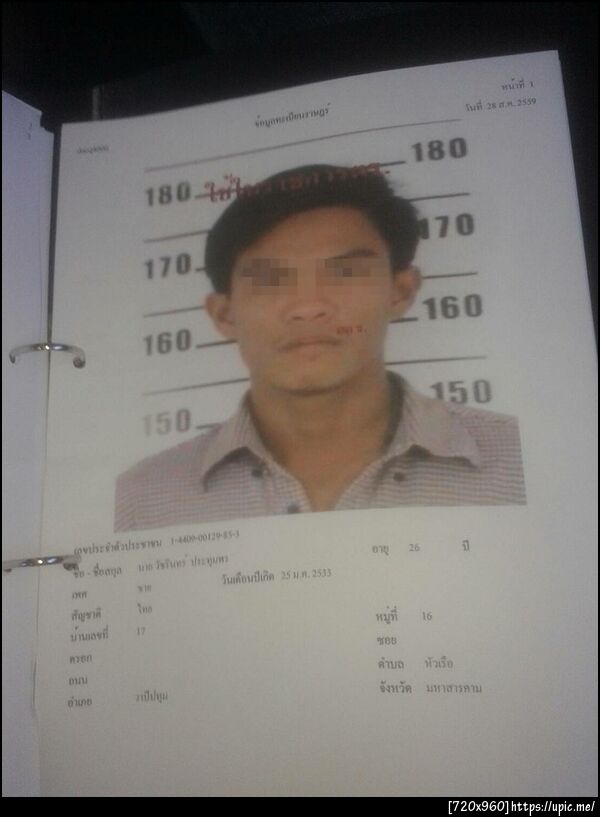 หน้าที่ 1
ข้อมูลทะเบียนราษฎร์
วันที่ 28 ส.ค. 2559
180 180
170 170
160 160
150 150
เลขประจำตัวประชาชน 1-4409-00129-85-3
อายุ 26 ปี
ชื่อ - ชื่อสกุล นาย วัชรินทร์ ประทุมพร
เพศ ชาย
วันเดือนปีเกิด 25 ม.ค. 2533
สัญชาติ ไทย
บ้านเลขที่ 17
หมู่ที่ 16
ตรอก
ซอย
ถนน
ตำบล หัวเรือ
อำเภอ วาปีปทุม
จังหวัด มหาสารคาม
[720x960]https://upic.me/